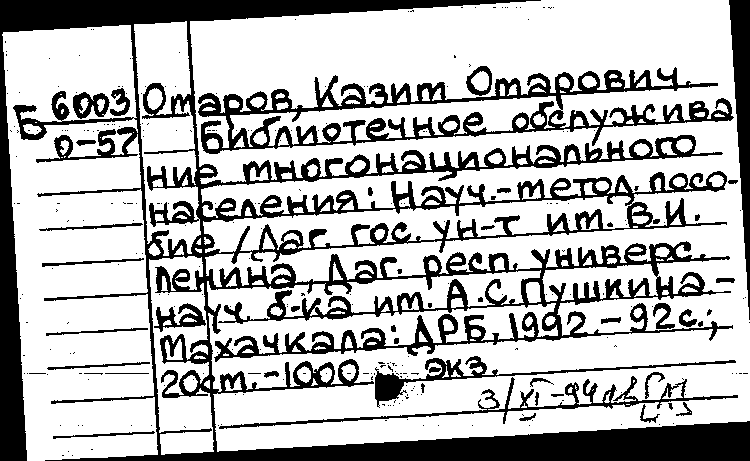 Б 6003 Отаров, Казит Отарович.
О-57 Библиотечное обслужива
ние многонационального
населения: Науч.-метод. посо-
бие / Даг. гос. ун-т им. В.И.
Ленина, Даг. респ. универс.
науч. б-ка им. А.С. Пушкина.-
Махачкала: ДРБ, 1992.-92с.;
20см.-1000 экз.
3/XI-94